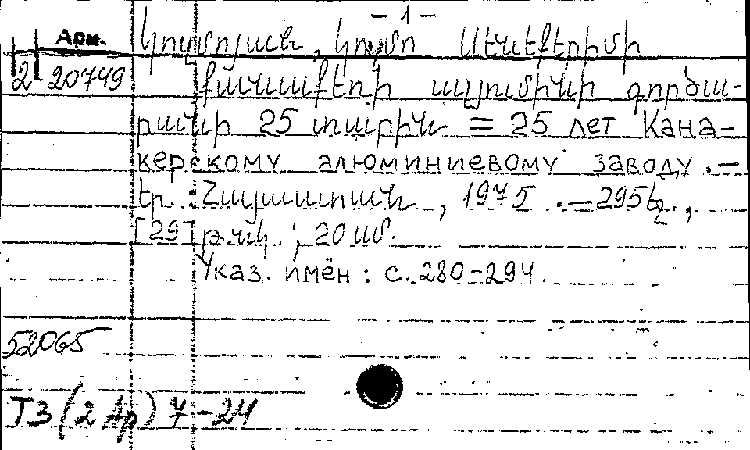 - 1 -
Арм.
2 20749
Քանաքեռի ալյումինի գործա-
րանի 25 տարին = 25 лет Кана-
керскому алюминиевому заводу. —
Եր.: Հայաստան, 1975. — 295 էջ,
[29] թ. նկ.; 20 սմ.
Указ. имён: с. 280-294.
52065
Т3(2Ар)7-24